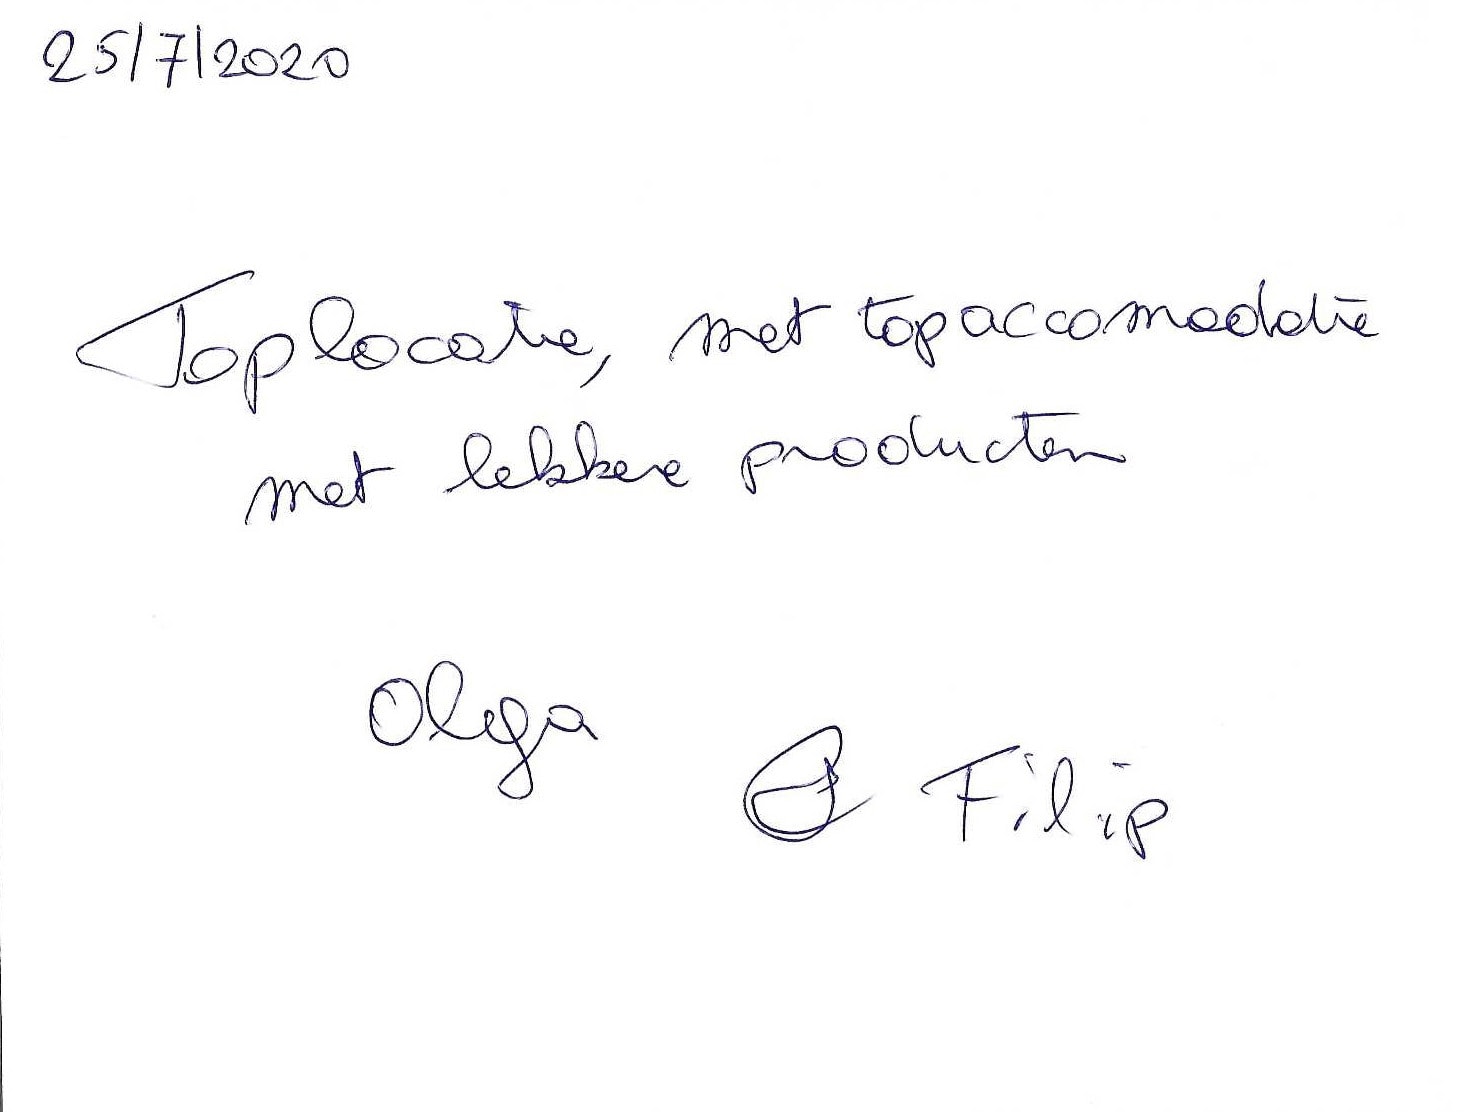 25/7/2020
Toplocatie, met topaccomodatie
met lekkere producten
Olga
& Filip